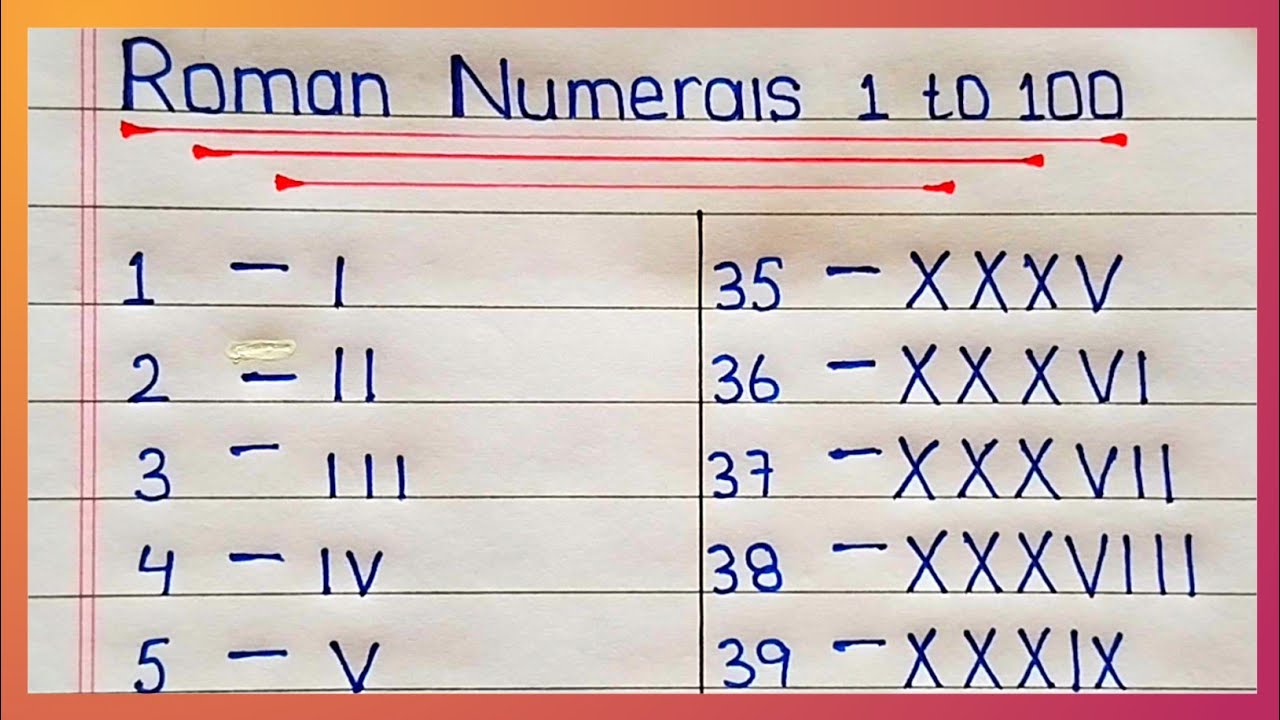 Roman Numerals 1 to 100
1 — I
2 — II
3 — III
4 — IV
5 — V
35 — XXXV
36 — XXXVI
37 — XXXVII
38 — XXXVIII
39 — XXXIX